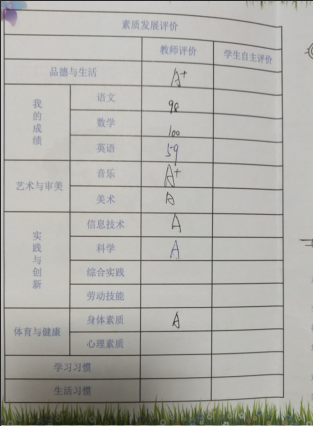 素质发展评价
教师评价 学生自主评价
品德与生活 A+
我的成绩 语文 98
数学 100
英语 59
艺术与审美 音乐 A+
美术 A
实践与创新 信息技术 A
科学 A
综合实践
劳动技能
体育与健康 身体素质 A
心理素质
学习习惯
生活习惯